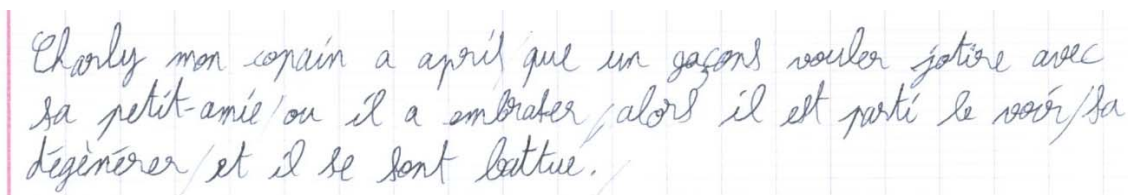 Charly mon copain a april que un gaçons vouler jotire avec
sa petit-amie/ou il a embrater/alors il est parti le voir/sa
dégènérer/et il se sont battue.